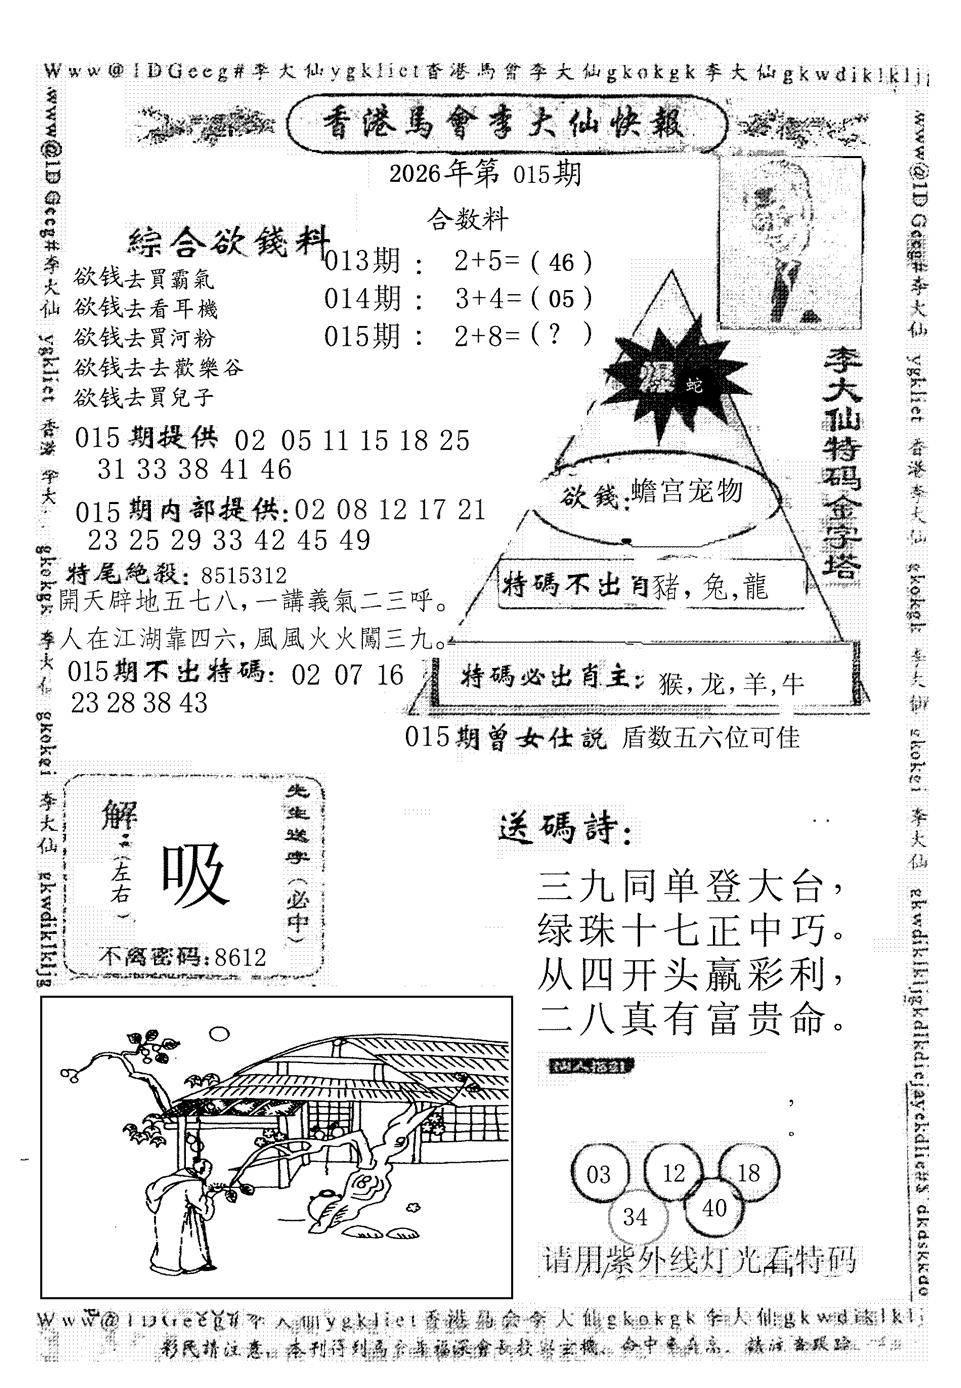 Www@1DGeeg#李大仙ygkliet香港馬會李大仙gkokgk李大仙gkwdiklkljg
香港馬會李大仙快報
2026年第 015期
合数料
綜合欲錢料
013期 : 2+5=( 46 )
014期 : 3+4=( 05 )
015期 : 2+8=( ? )
欲钱去買霸氣
欲钱去看耳機
欲钱去買河粉
欲钱去去歡樂谷
欲钱去買兒子
015期提供 02 05 11 15 18 25
31 33 38 41 46
015期内部提供:02 08 12 17 21
23 25 29 33 42 45 49
特尾絶殺: 8515312
開天辟地五七八，一講義氣二三呼。
人在江湖靠四六，風風火火闖三九。
015期不出特碼: 02 07 16
23 28 38 43
李大仙特码金字塔
爆 蛇
欲錢:蟾宫宠物
特碼不出肖豬，兔，龍
特碼必出肖主: 猴，龙，羊，牛
015期曾女仕説 盾数五六位可佳
解
(左右)
吸
先生送字(必中)
不离密码:8612
送碼詩:
三九同单登大台，
绿珠十七正中巧。
从四开头赢彩利，
二八真有富贵命。
，
。
03 12 18
34 40
请用紫外线灯光看特码
www@1DGeeg#李大仙 ygkliet 香港李大仙 gkokgk 李大仙 gkokei 李大仙 gkwdiklkljg
www@1DGeeg#李大仙 ygkliet 香港李大仙 gkokgk 李大仙 gkokei 李大仙 gkwdiklkljgkdikdiejayekdlie#$ dkdskkdo
Www@1DGeeg#李大仙ygkliet香港馬会李大仙gkokgk李大仙gkwdiklklj
彩民請注意，本刊得到馬会